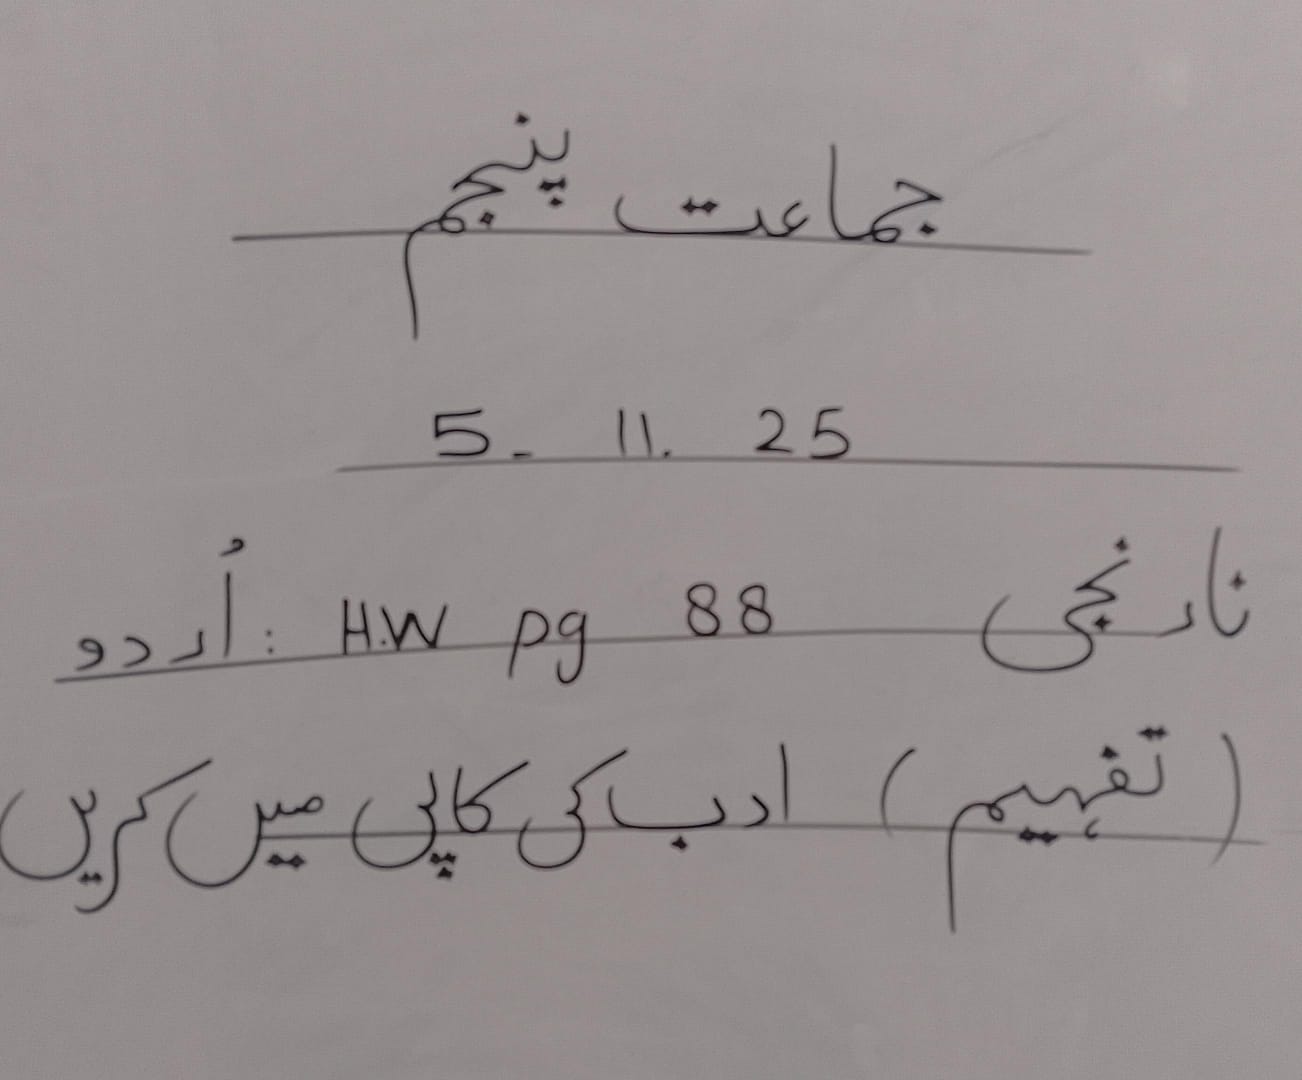 جماعت پنجم
5. 11. 25
اُردو: H.W pg 88 نارنجی
(تفہیم) ادب کی کاپی میں کریں